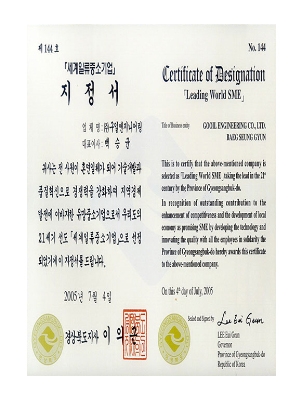 제 144 호
「세계일류중소기업」
지 정 서
업 체 명 (주)구일엔지니어링
대표이사 백 승 균
귀사는 전 사원이 혼연일체가 되어 기술개발과
품질혁신으로 경쟁력을 강화하여 지역경제
발전에 이바지한 유망중소기업으로서 우리도의
21세기 선도 「세계일류중소기업」으로 선정
되었기에 이 지정서를 드립니다.
2005년 7월 4일
경상북도지사 이 의 근
No. 144
Certificate of Designation
「Leading World SME」
Title of Business entity GOOIL ENGINEERING CO., LTD.
BAEG SEUNG GYUN
This is to certify that the above-mentioned company is
selected as "Leading World SME" taking the lead in the 21st
century by the Province of Gyeongsangbuk-do.
In recognition of outstanding contribution to the
enhancement of competitiveness and the development of local
economy as promising SME by developing the technology and
innovating the quality with all the employees in solidarity the
Province of Gyeongsangbuk-do hereby awards this certificate
to the above-mentioned company.
On this 4th day of July, 2005
Sealed and Signed by Lee Eui Geun
LEE Eui Geun
Governor
Province of Gyeongsangbuk-do
Republic of Korea